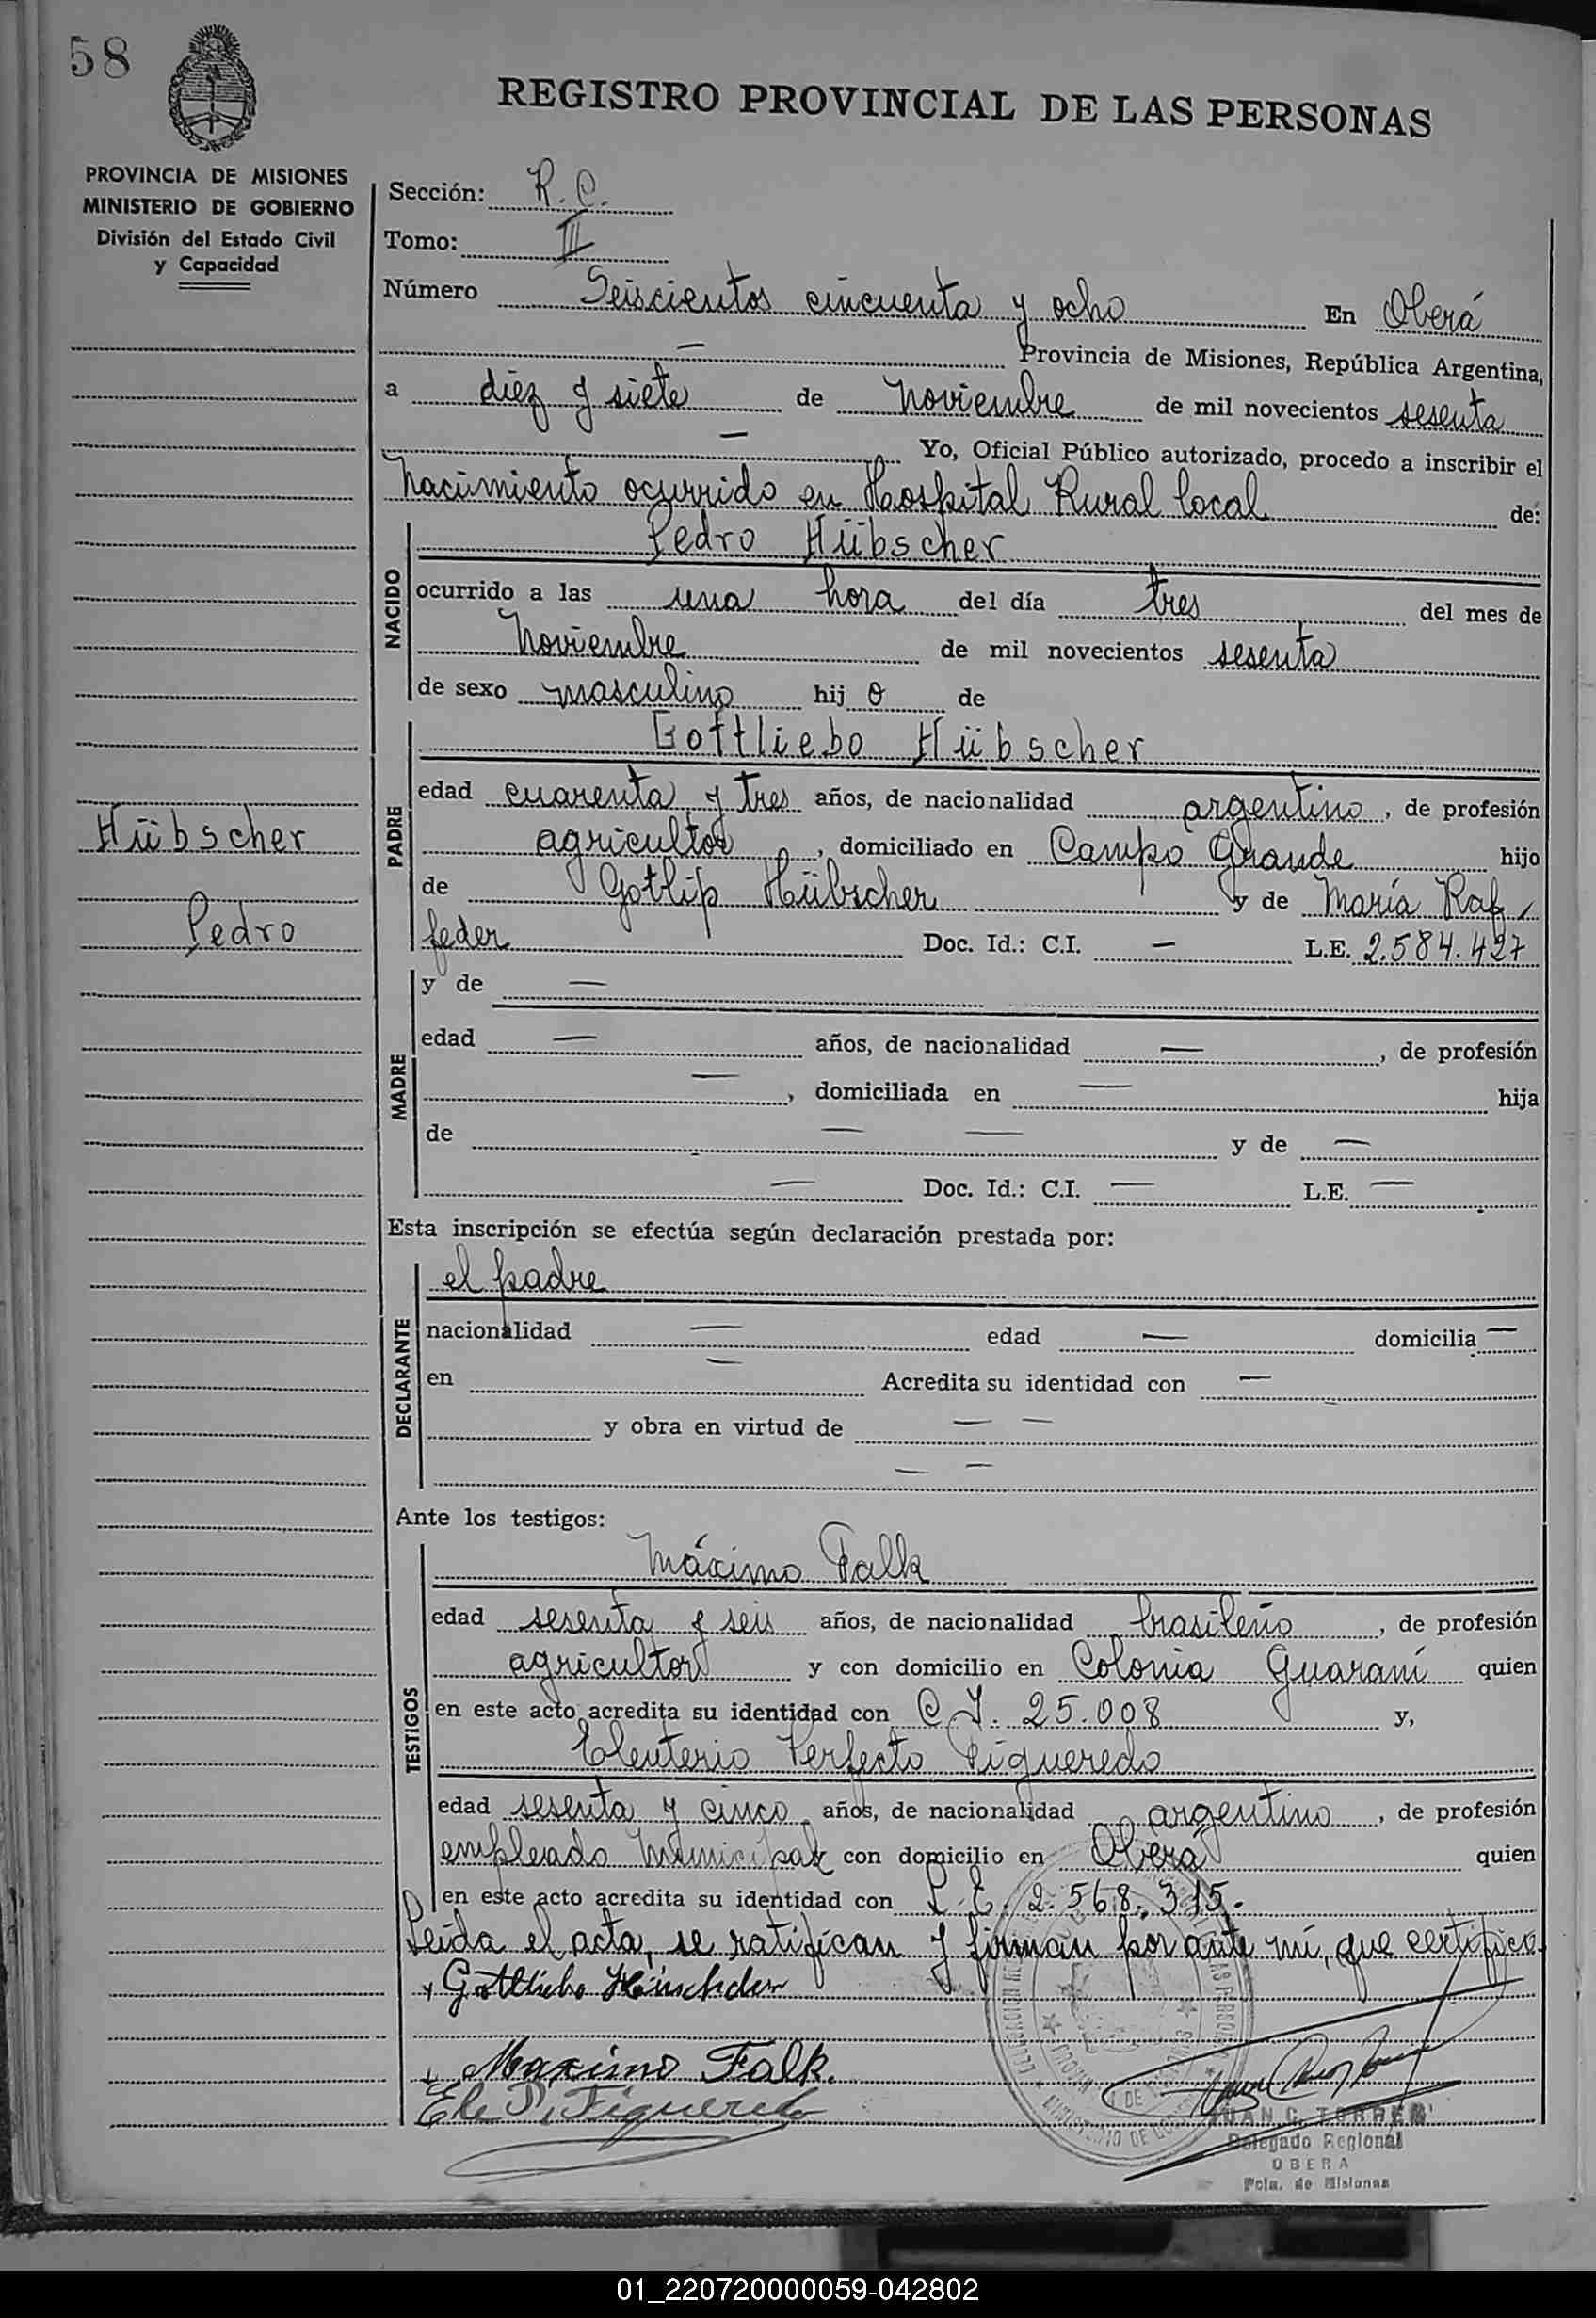 58
REGISTRO PROVINCIAL DE LAS PERSONAS
PROVINCIA DE MISIONES
MINISTERIO DE GOBIERNO
División del Estado Civil
y Capacidad
Sección: R. C.
Tomo: III
Número Seiscientos cincuenta y ocho En Oberá
— Provincia de Misiones, República Argentina,
a diez y siete de noviembre de mil novecientos sesenta
— Yo, Oficial Público autorizado, procedo a inscribir el
nacimiento ocurrido en Hospital Rural local de:
NACIDO
Pedro Hübscher
ocurrido a las una hora del día tres del mes de
noviembre de mil novecientos sesenta
de sexo masculino hij o de
PADRE
Gottliebo Hübscher
edad cuarenta y tres años, de nacionalidad argentino, de profesión
agricultor, domiciliado en Campo Grande hijo
de Gotlip Hübscher y de María Raf
feder Doc. Id.: C.I. — L.E. 2.584.427
Hübscher
Pedro
MADRE
y de —
edad — años, de nacionalidad —, de profesión
—, domiciliada en — hija
de — — y de —
— Doc. Id.: C.I. — L.E. —
Esta inscripción se efectúa según declaración prestada por:
DECLARANTE
el padre
nacionalidad — edad — domicilia —
en — Acredita su identidad con —
y obra en virtud de — —
— —
Ante los testigos:
TESTIGOS
Máximo Falk
edad sesenta y seis años, de nacionalidad brasileño, de profesión
agricultor y con domicilio en Colonia Guaraní quien
en este acto acredita su identidad con C. I. 25.008 y,
Eleuterio Perfecto Figueredo
edad sesenta y cinco años, de nacionalidad argentino, de profesión
empleado municipal con domicilio en Oberá quien
en este acto acredita su identidad con L. E. 2.568.315.
Leída el acta, se ratifican y firman por ante mí, que certifico
Gottliebo
Maximo Falk.
Ele P. Figueredo
JUAN C. TORRES
Delegado Regional
OBERA
Pcia. de Misiones
01_220720000059-042802